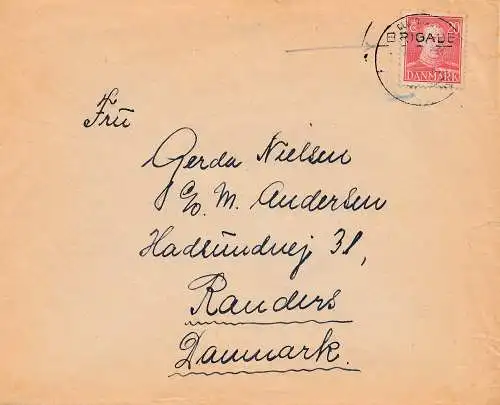 BRIGADE
DANMARK
Fru
Gerda Nielsen
c/o. M. Andersen
Hadsundvej 31,
Randers
Danmark.